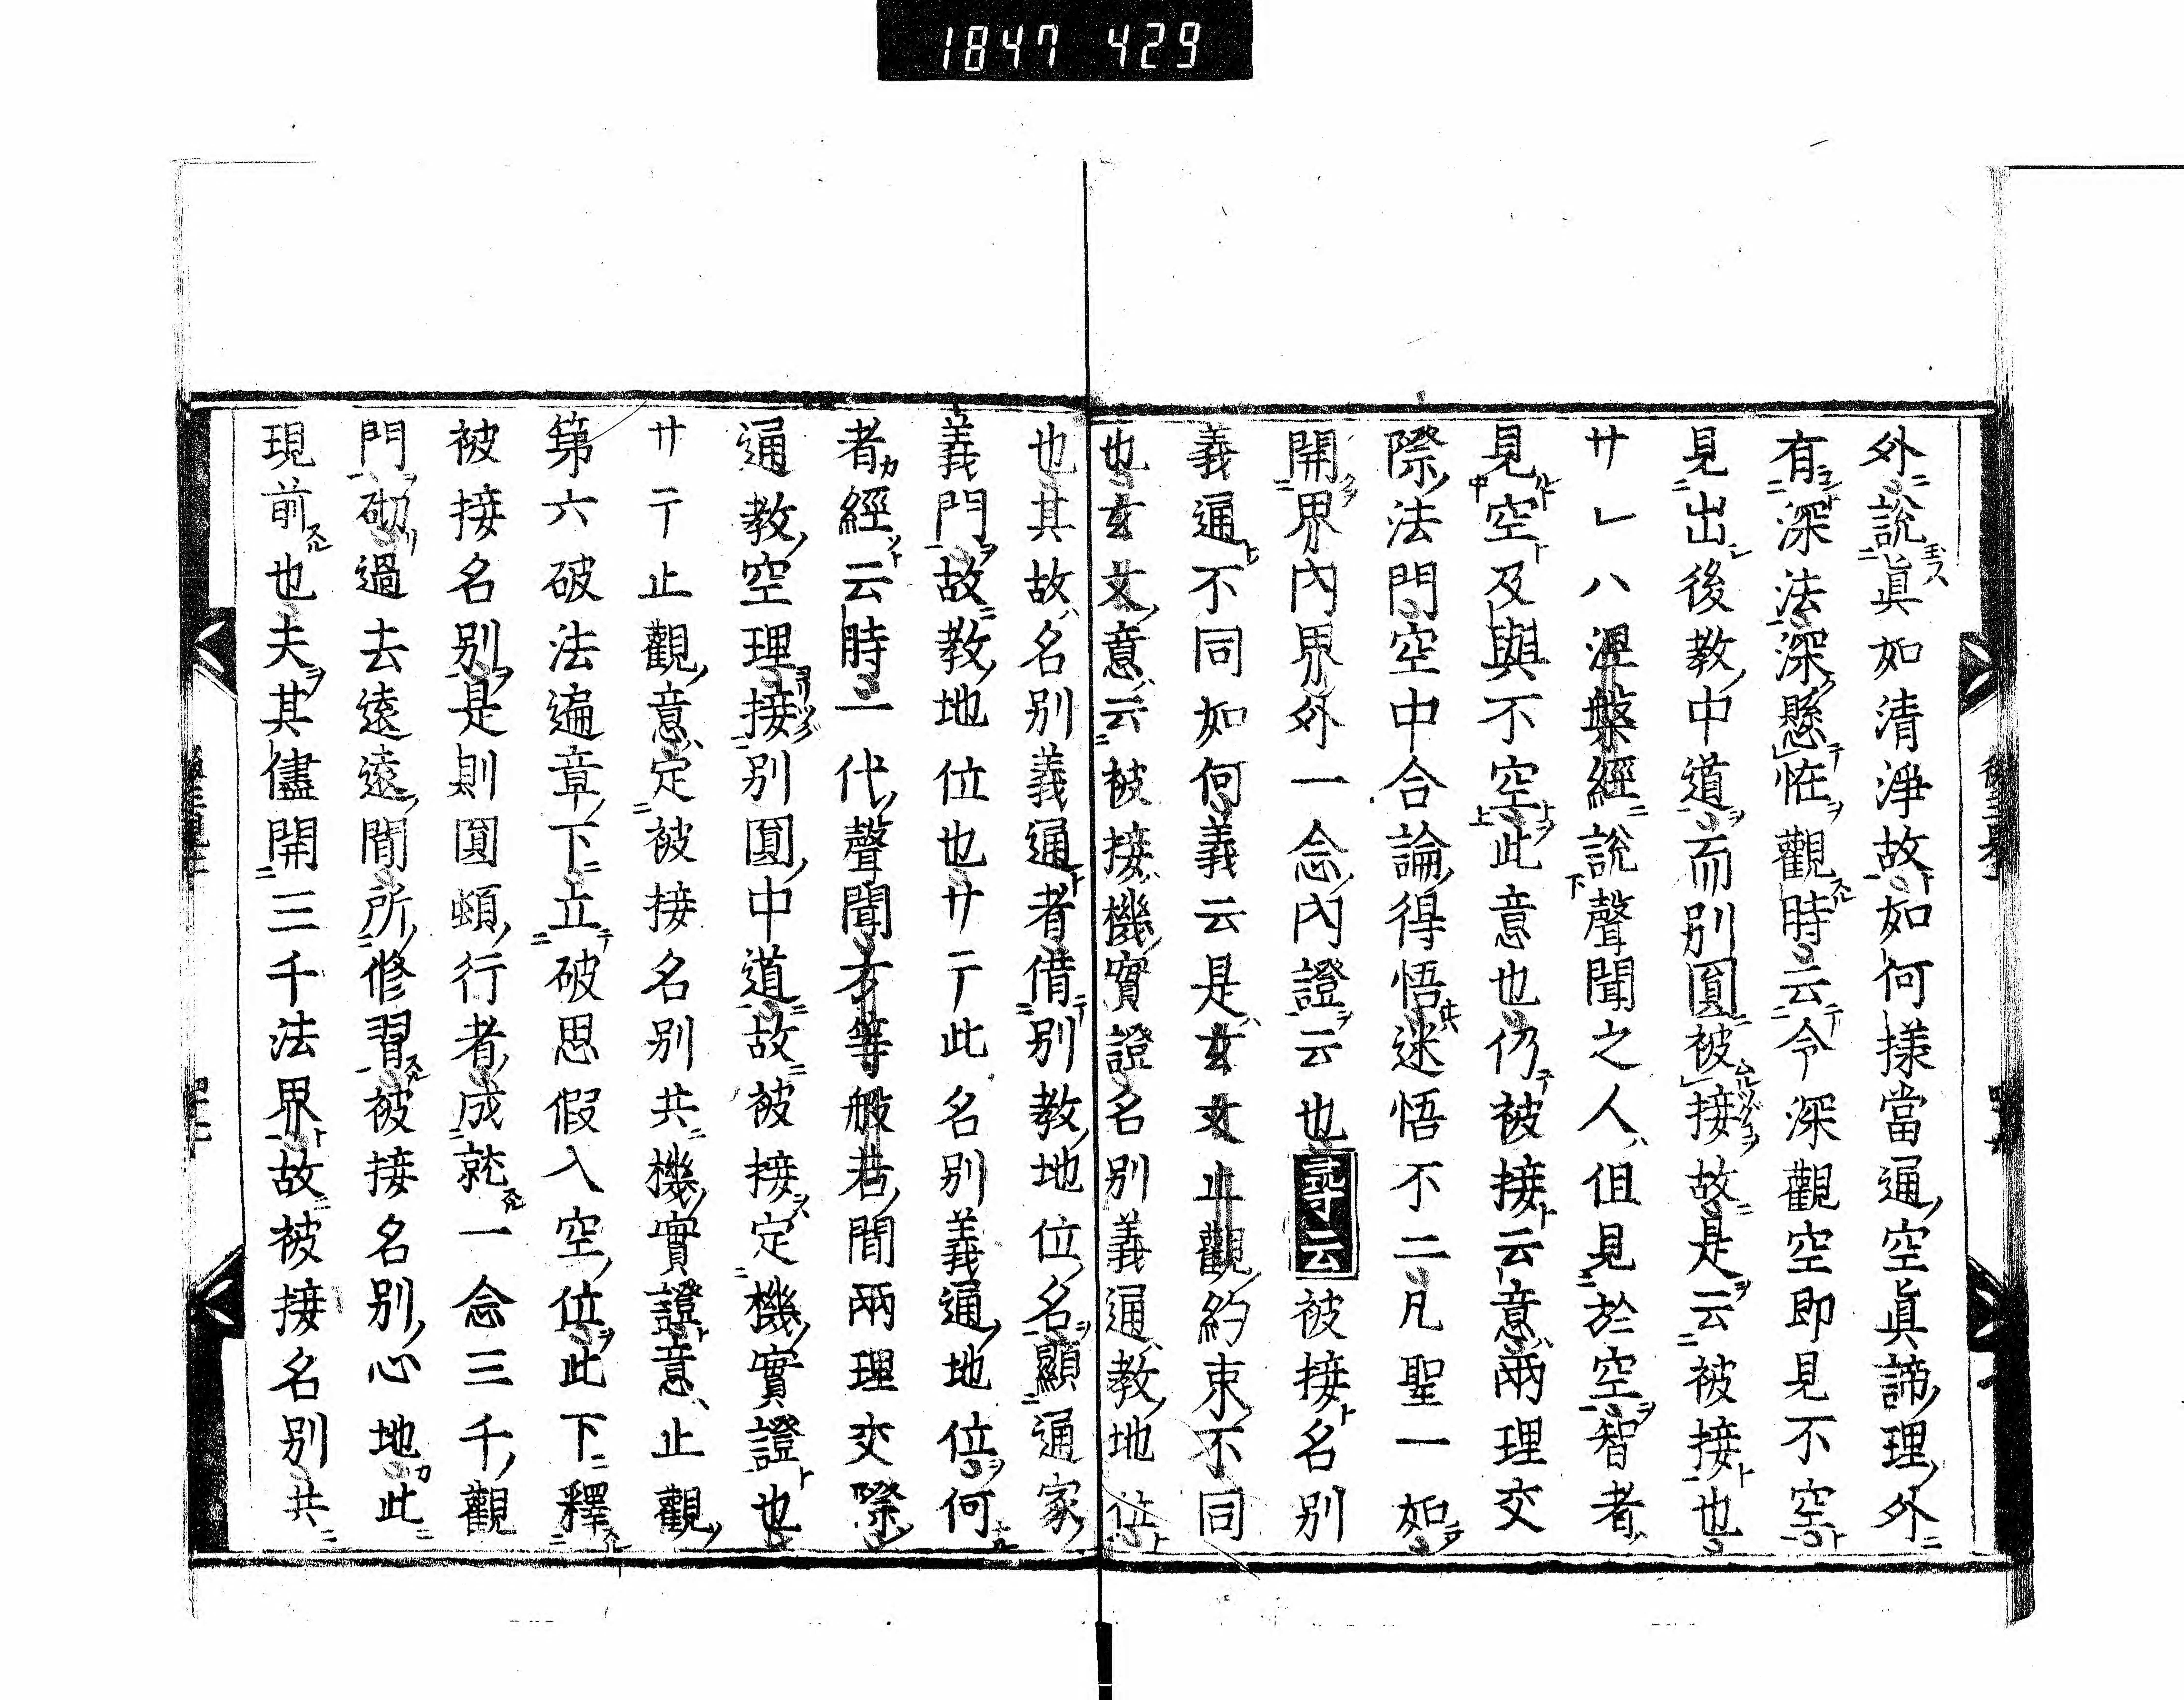 1847 429
外說眞如清淨故如何樣當通空眞諦理外
有深法深懸恠觀時云令深觀空即見不空
見出後教中道而別圓被接故是云被接也
廾㆑八涅槃經說聲聞之人但見於空智者
見空及與不空此意也仍被接云意兩理交
際法門空中合論得悟迷悟不二凡聖一如
開界內界外一念內證云也尋云被接名別
義通不同如何義云是玄文止觀約束不同
也玄文意云被接機實證名別義通教地位
也其故名別義通者借別教地位名顯通家
義門故教地位也廾一丁此名別義通地位何
者經云時一代聲聞方等般若間兩理交際
通教空理接別圓中道故被接定機實證也
廾二丁止觀意定被接名別共機實證意止觀
第六破法遍章下立破思假入空位此下釋
被接名別是則圓頓行者成就一念三千觀
門砌過去遠遠間所修習被接名別心地此
現前也夫其儘開三千法界故被接名別共